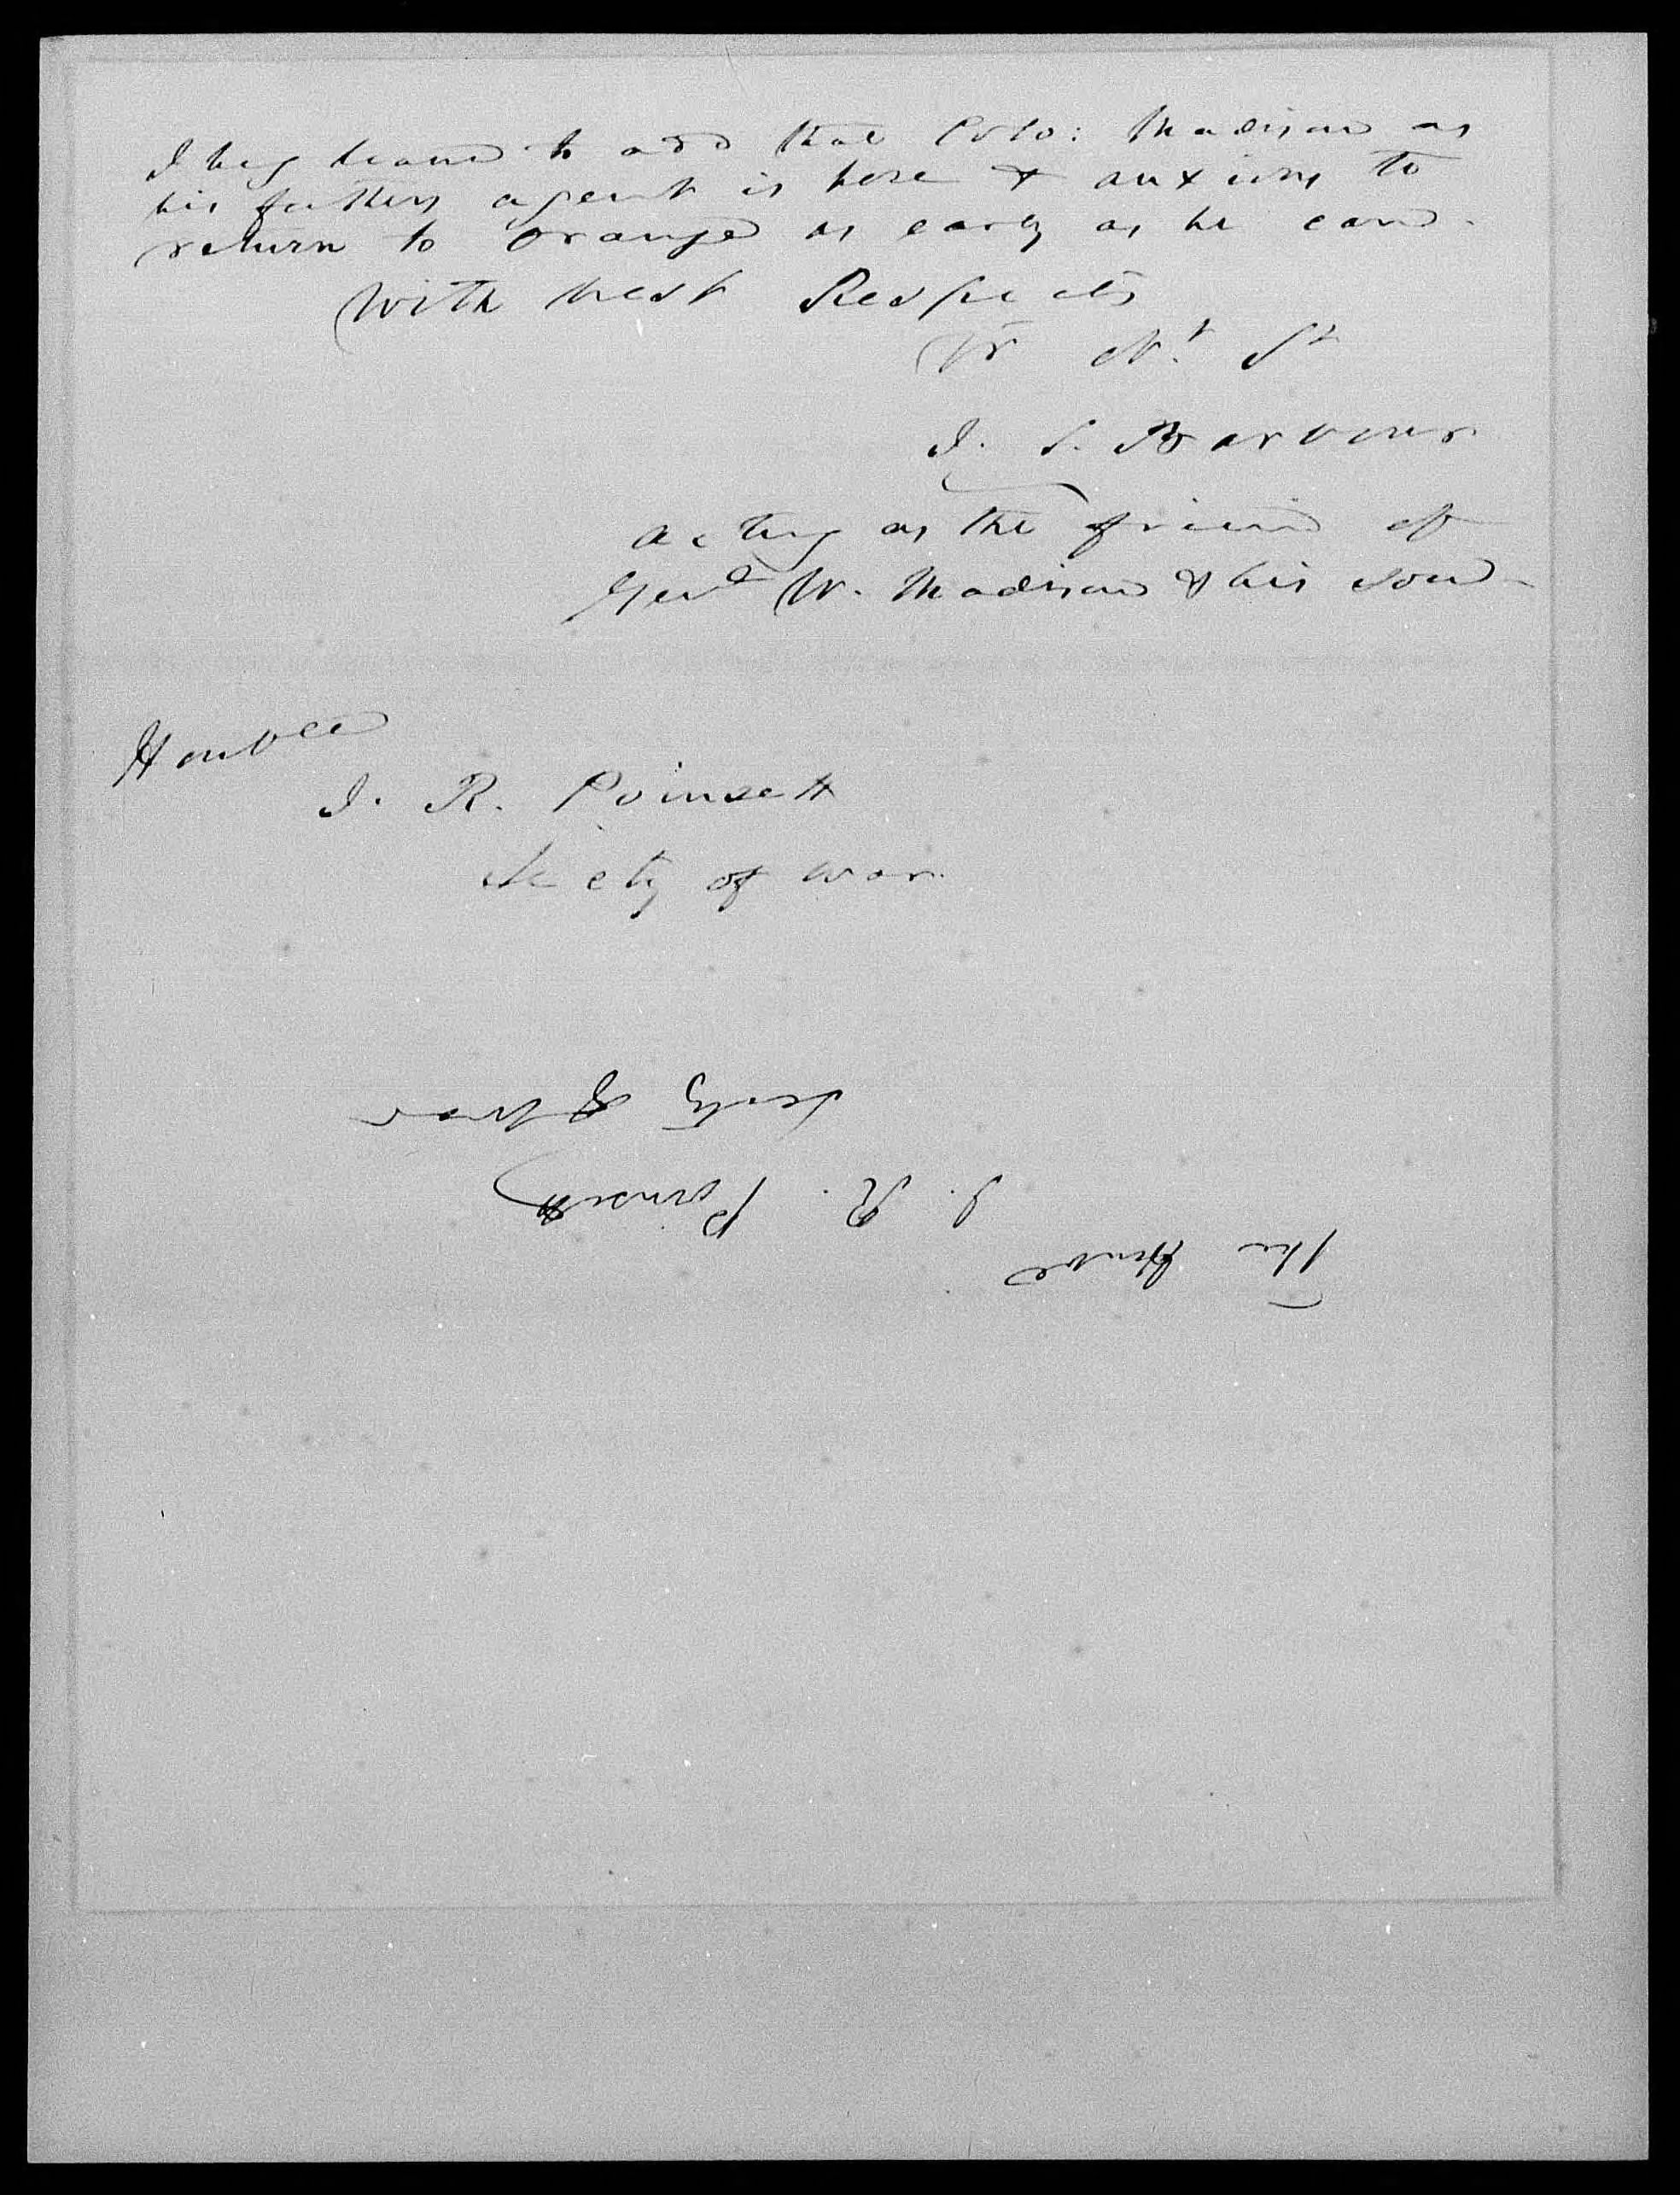 I beg leave to add that Colo: Madison as
his fathers agent is here & anxious to
return to Orange as early as he can.
With best Respects
Yr Obt St
J. S. Barbour
acting as the friend of
Genl W. Madison & his son
Honble
J. R. Poinsett
Secty of War.
The Honble
J. R. Poinsett
Secty of War